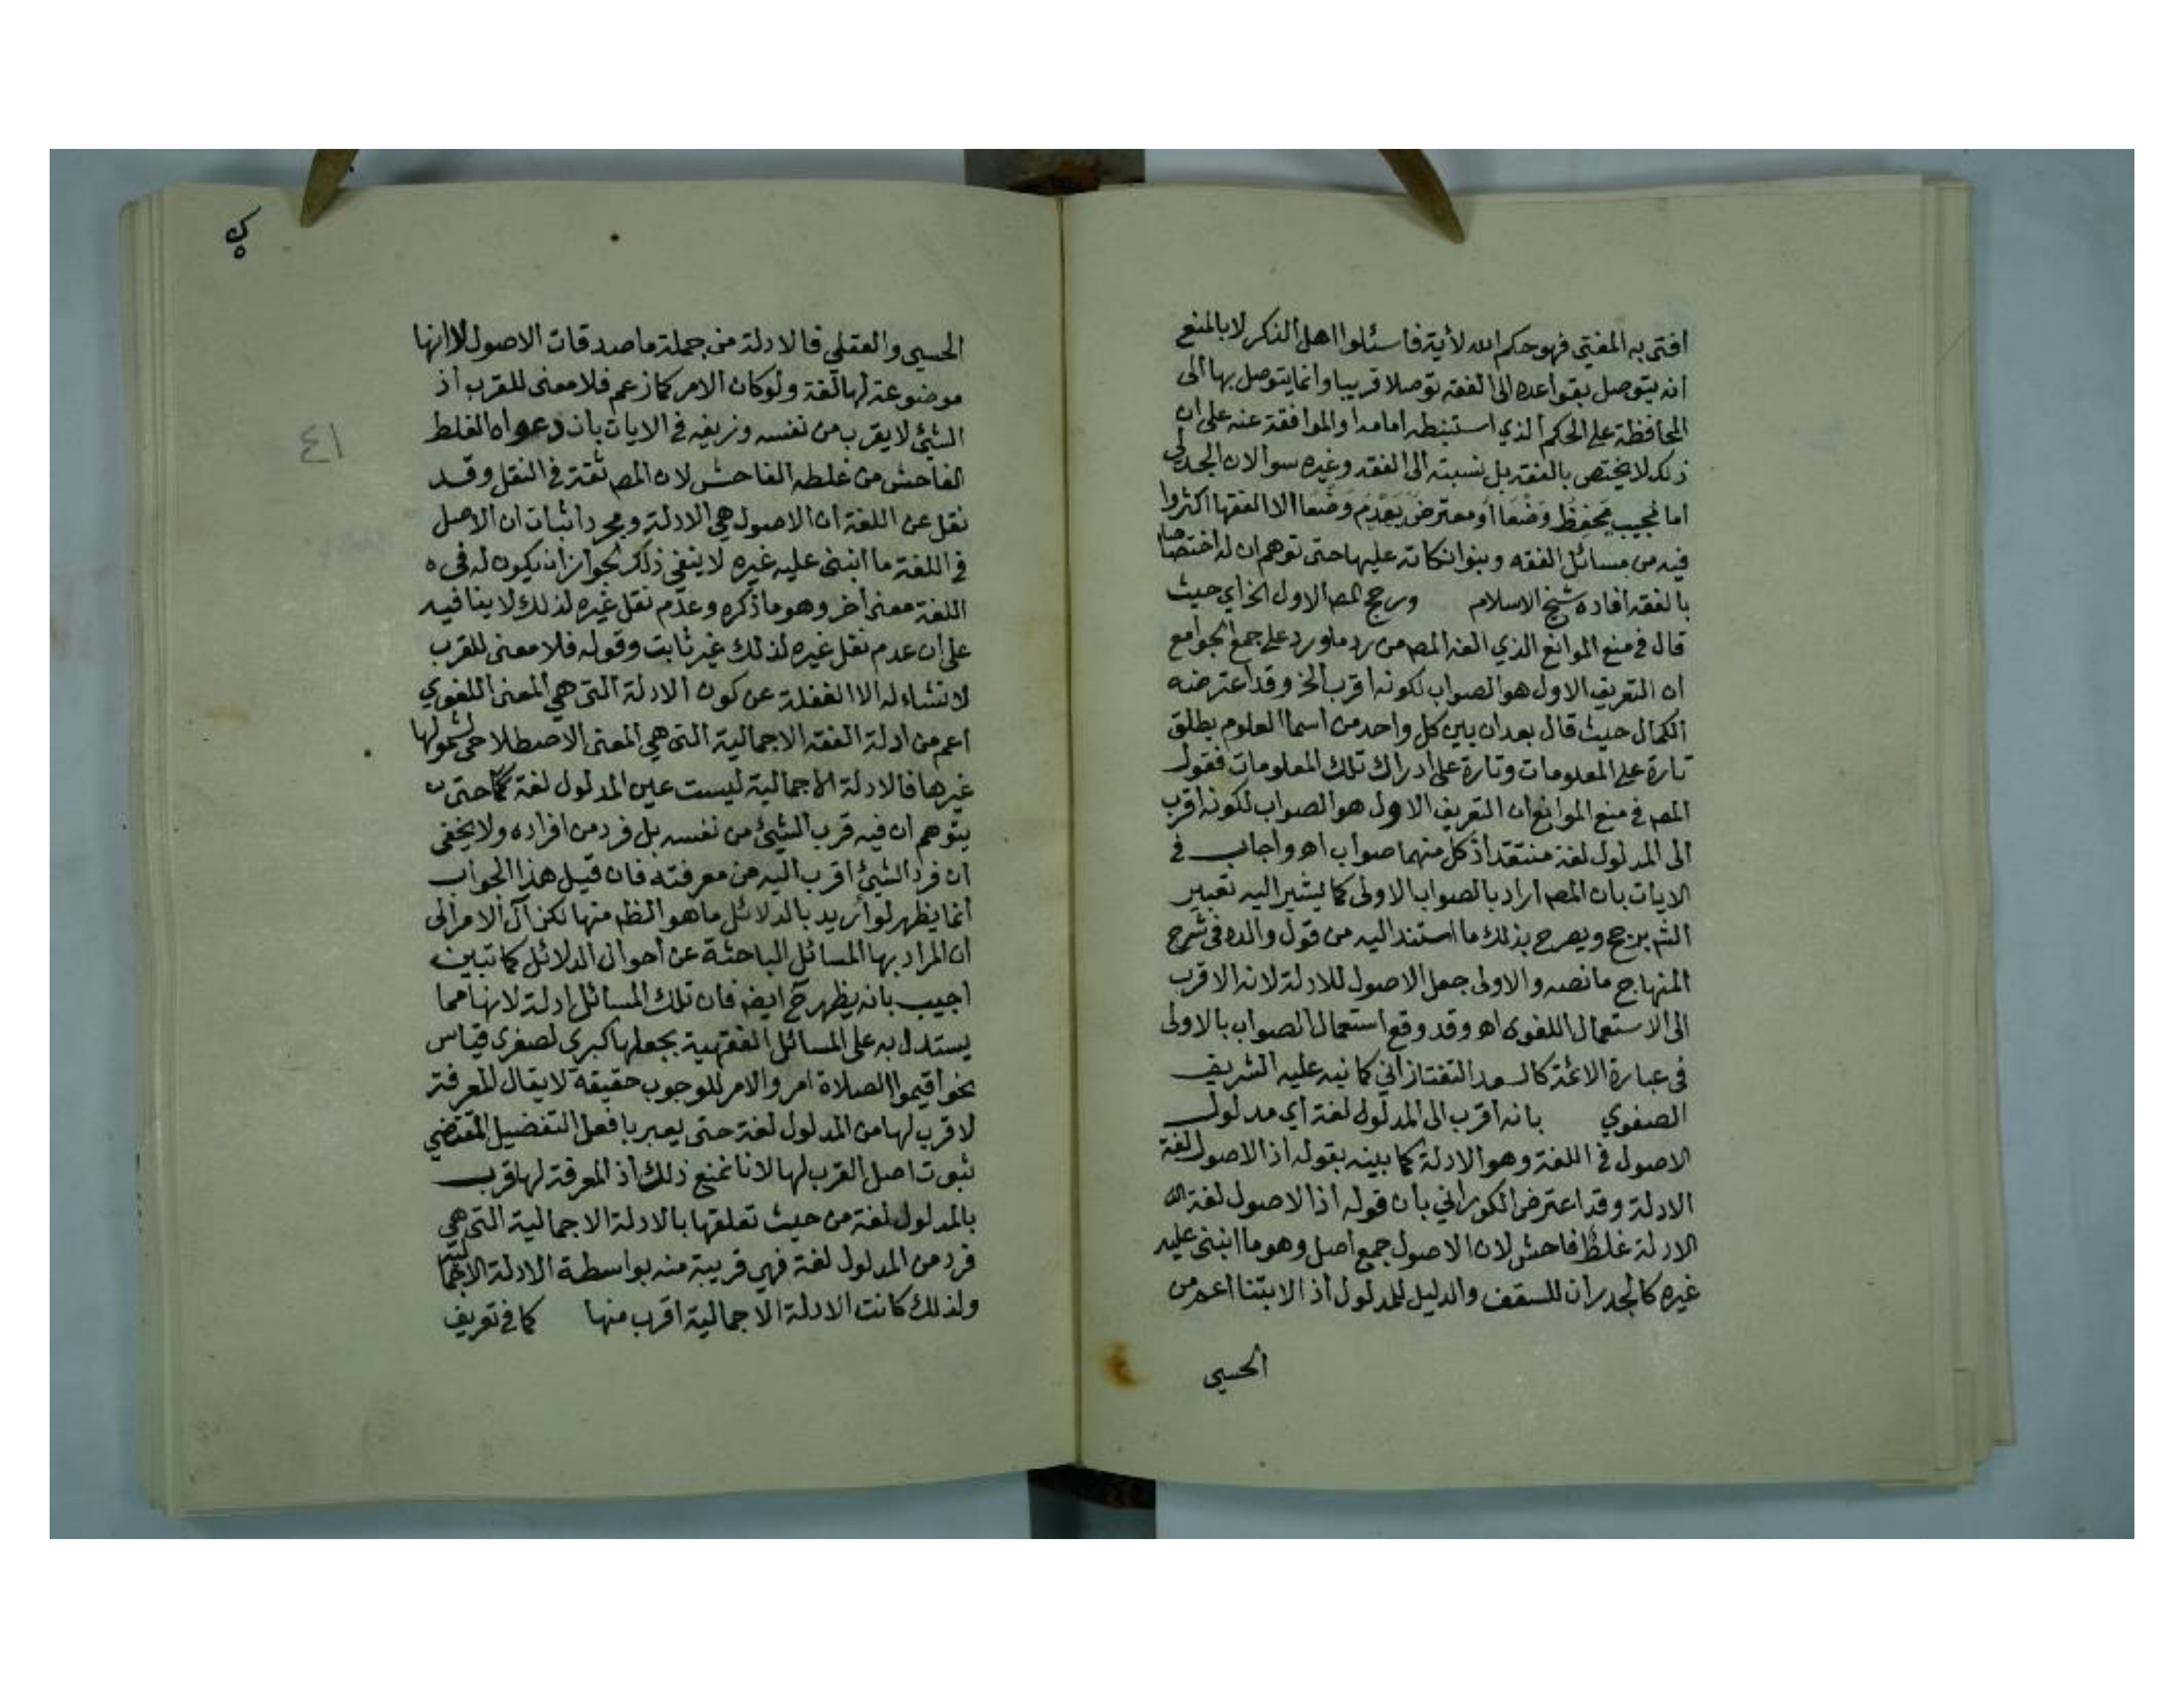 افتى به المفتي فهو حكم الله لأية فاسئلوا اهل الذكر لا بالمنع
انه يتوصل بقواعده الى الفقه توصلا قريبا وانما يتوصل بها الى
المحافظة على الحكم الذي استنبطه امامه او الموافقة عنه على ان
ذلك لا يختص بالفقه بل نسبته الى الفقه وغيره سوا لان الجدلي
اما مجيب يحفظ وضعا او معترض يهدم وضعا الا الفقها اكثروا
فيه من مسائل الفقه وبنوا نكاته عليها حتى توهم ان له اختصاصا
بالفقه افاده شيخ الاسلام ورجح المص الاول الخ اي حيث
قال في منع الموانع الذي الفه المص من رد ما ورد على جمع الجوامع
ان التعريف الاول هو الصواب لكونه اقرب الخ وقد اعترضه
الكمال حيث قال بعد ان بين كل واحد من اسما العلوم يطلق
تارة على المعلومات وتارة على ادراك تلك المعلومات فقول
المص في منع الموانع ان التعريف الاول هو الصواب لكونه اقرب
الى المدلول لغة منتقد اذ كل منهما صواب اه واجاب في
الايات بان المص اراد بالصواب الاولى كما يشير اليه تعبير
الشم برجح ويصرح بذلك ما استند اليه من قول والده في شرح
المنهاج ما نصه والاولى جعل الاصول للادلة لانه الاقرب
الى الاستعمال اللغوى اه وقد وقع استعمال الصواب بالاولى
في عبارة الائمة كالسعد التفتازاني كما نبه عليه الشريف
الصفوي بانه اقرب الى المدلول لغة اي مدلول
الاصول في اللغة وهو الادلة كما بينه بقوله اذ الاصول لغة
الادلة وقد اعترض الكوراني بان قوله اذ الاصول لغة
الادلة غلط فاحش لان الاصول جمع اصل وهو ما انبنى عليه
غيره كالجدران للسقف والدليل للمدلول اذ الابتنا اعم من
الحسي
٤١
الحسي والعقلي فالادلة من جملة ماصدقات الاصول لا انها
موضوعة لها لغة ولو كان الامر كما زعم فلا معنى للقرب اذ
الشيئ لا يقرب من نفسه وزيفه في الايات بان دعواه الغلط
الفاحش من غلطه الفاحش لان المص ثقة في النقل وقد
نقل عن اللغة ان الاصول هي الادلة ومجرد اثبات ان الاصل
في اللغة ما انبنى عليه غيره لا ينفي ذلك لجواز ان يكون له في
اللغة معنى اخر وهو ما ذكره وعدم نقل غيره لذلك لا ينافيه
على ان عدم نقل غيره لذلك غير ثابت وقوله فلا معنى للقرب
لا نشاء له الا الغفلة عن كون الادلة التي هي المعنى اللغوي
اعم من ادلة الفقه الاجمالية التي هي المعنى الاصطلاحي لشمولها
غيرها فالادلة الاجمالية ليست عين المدلول لغة حتى
يتوهم ان فيه قرب الشيئ من نفسه بل فرد من افراده ولا يخفى
ان فرد الشيئ اقرب اليه من معرفته فان قيل هذا الجواب
انما يظهر لو اريد بالدلائل ما هو الظ منها لكن آل الامر الى
ان المراد بها المسائل الباحثة عن احوال الدلائل كما تبين
اجيب بانه يظهر ح ايضا فان تلك المسائل ادلة لانها مما
يستدل به على المسائل الفقهية بجعلها كبرى لصغرى قياس
نحو اقيموا الصلاة امر والامر للوجوب حقيقة لا يقال المعرفة
لا قرب لها من المدلول لغة حتى يعبر بافعل التفضيل المقتضي
ثبوت اصل القرب لها لانا نمنع ذلك اذ المعرفة لها قرب
بالمدلول لغة من حيث تعلقها بالادلة الاجمالية التي هي
فرد من المدلول لغة فهي قريبة منه بواسطة الادلة الاجمالية
ولذلك كانت الادلة الاجمالية اقرب منها كما في تعريف